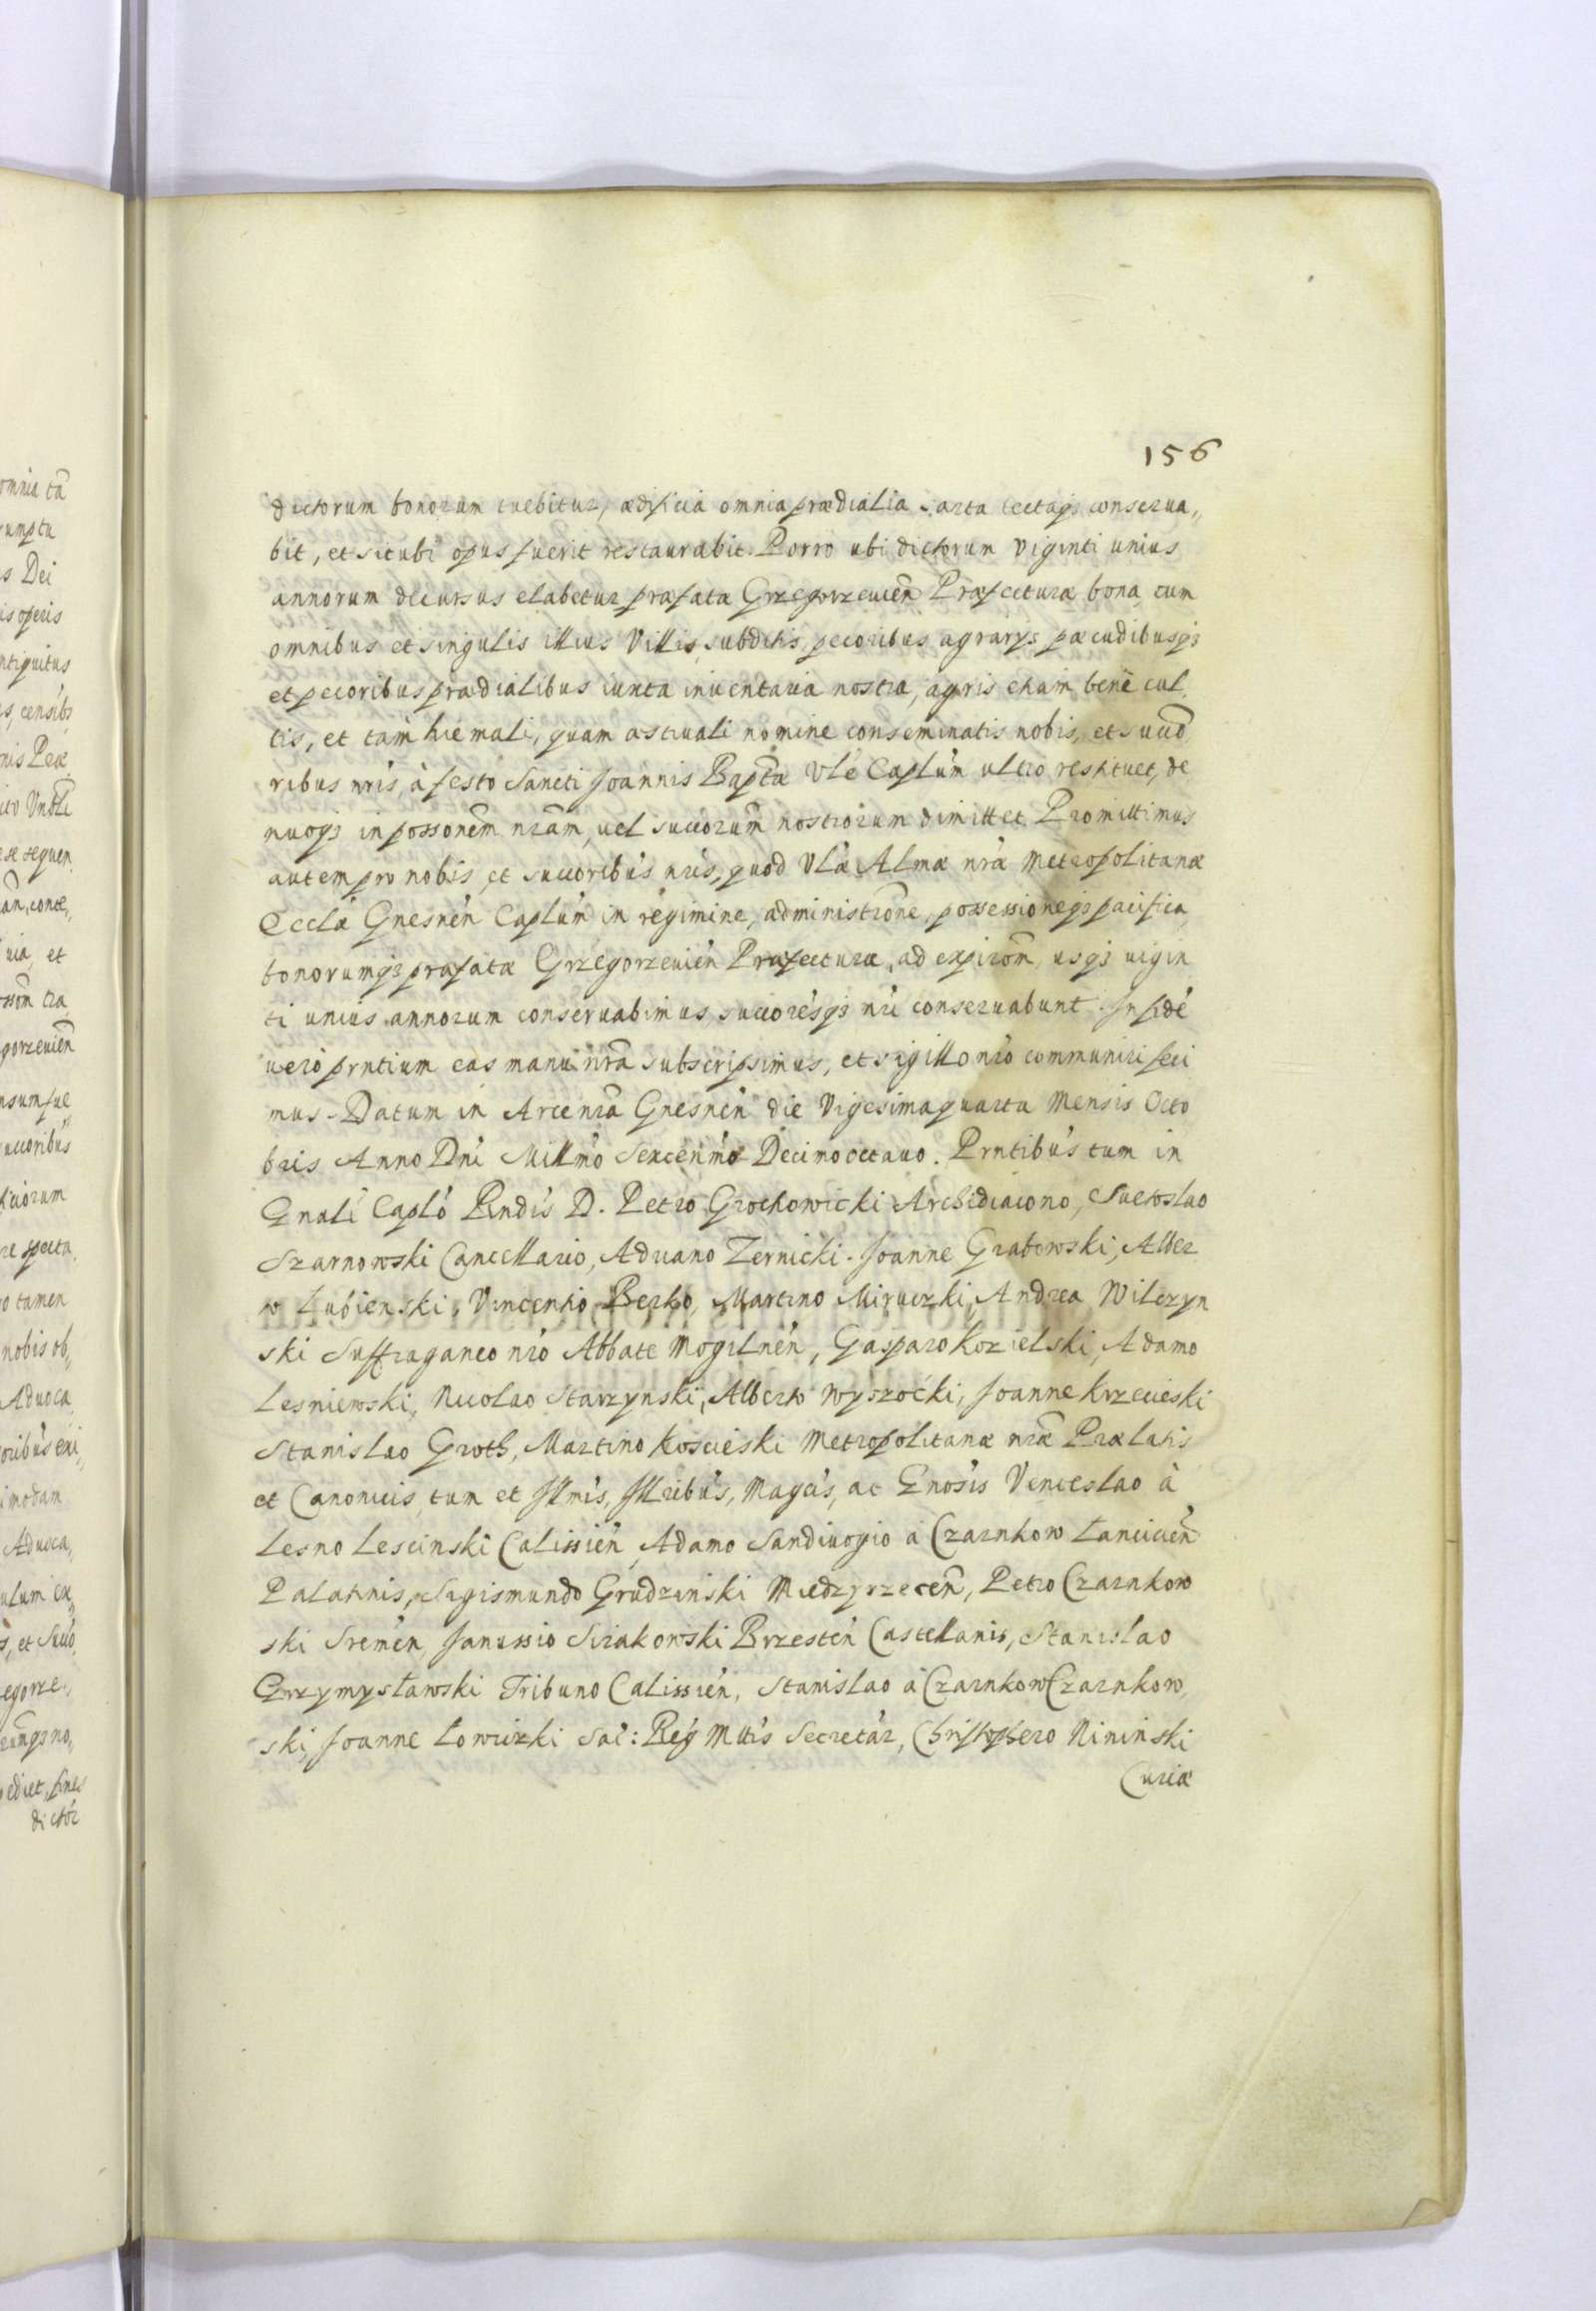 156
dictorum bonorum tuebitur, ædificia omnia prædialia sarta tectaqꝫ conserua,,
bit, et sicubi opus fuerit restaurabit. Porro ubi dictorum Viginti unius
annorum decursus elabetur præfata Grzegorzeuien̄ Præfecturæ bona cum
omnibus et singulis illius Villis, subditis, pecoribus agrarys pæcudibusqꝫ
et pecoribus prædialibus iuxta inuentaria nostra, agris etiam bene cul,
tis, et tam hiemali, quam æstiuali nomine conseminatis nobis, et succo
ribus nris, à festo Sancti Joannis Baptæ Vle Caplum ultro restituet, de
nuoqꝫ in possonem nram, uel succorum nostrorum dimittet. Promittimus
autem pro nobis et succoribus nris, quod Vlæ Almæ nræ Metropolitanæ
Ecclæ Gnesnen Caplum in regimine, administrone, possessioneqꝫ pacifica,
bonorumqꝫ præfatæ Grzegorzeuien Præfecturæ, ad expirom usqꝫ uigin
ti unius annorum conseruabimus, succoresqꝫ nri conseruabunt. In fidē
uero prntium eas manu nra subscripsimus, et sigillo nro communiri feci
mus. Datum in Arce nra Gnesnen die Vigesimaquarta Mensis Octo
bris Anno Dni Millmo Sexcenmo Decimooctauo. Prntibus tum in
Gnali Caplo Rndis D. Petro Grochowicki Archidiacono, Suetoslao
Szarnowski Cancellario, Aduano Zernicki. Joanne Grabowski, Alber
to Łubienski, Vincentio Berho, Martino Miruczki, Andrea Wilczyn
ski Suffraganeo nro Abbate Mogilnen, Gasparo Kozielski, Adamo
Lesniewski, Nicolao Starzynski, Alberto Wyszocki, Joanne Krzecieski
Stanislao Groth, Martino Koscieski Metropolitanæ nræ Prælatis
et Canonicis, tum et Illmis, Illribus, Magcis, ac Gnosis Venceslao à
Lesno Lescinski Calissien, Adamo Sandiuogio à Czarnkow Łanciciēn
Palatinis, Sigismundo Grudzinski Miedzyrzecen, Petro Czarnkow
ski Sremen, Janussio Sciakowski Brzesten Castellanis, Stanislao
Grzymysławski Tribuno Calissien, Stanislao à Czarnkow Czarnkow,
ski, Joanne Łowiczki Sac: Reg Mttis Secretar, Christophero Nininski
Curiæ